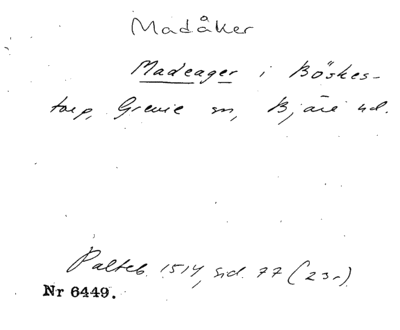 Madåker
Madeager i Böskes-
torp, Grevie sn, Bjäre hd.
Palteb. 1514, sid. 77 (23r)
Nr 6449.